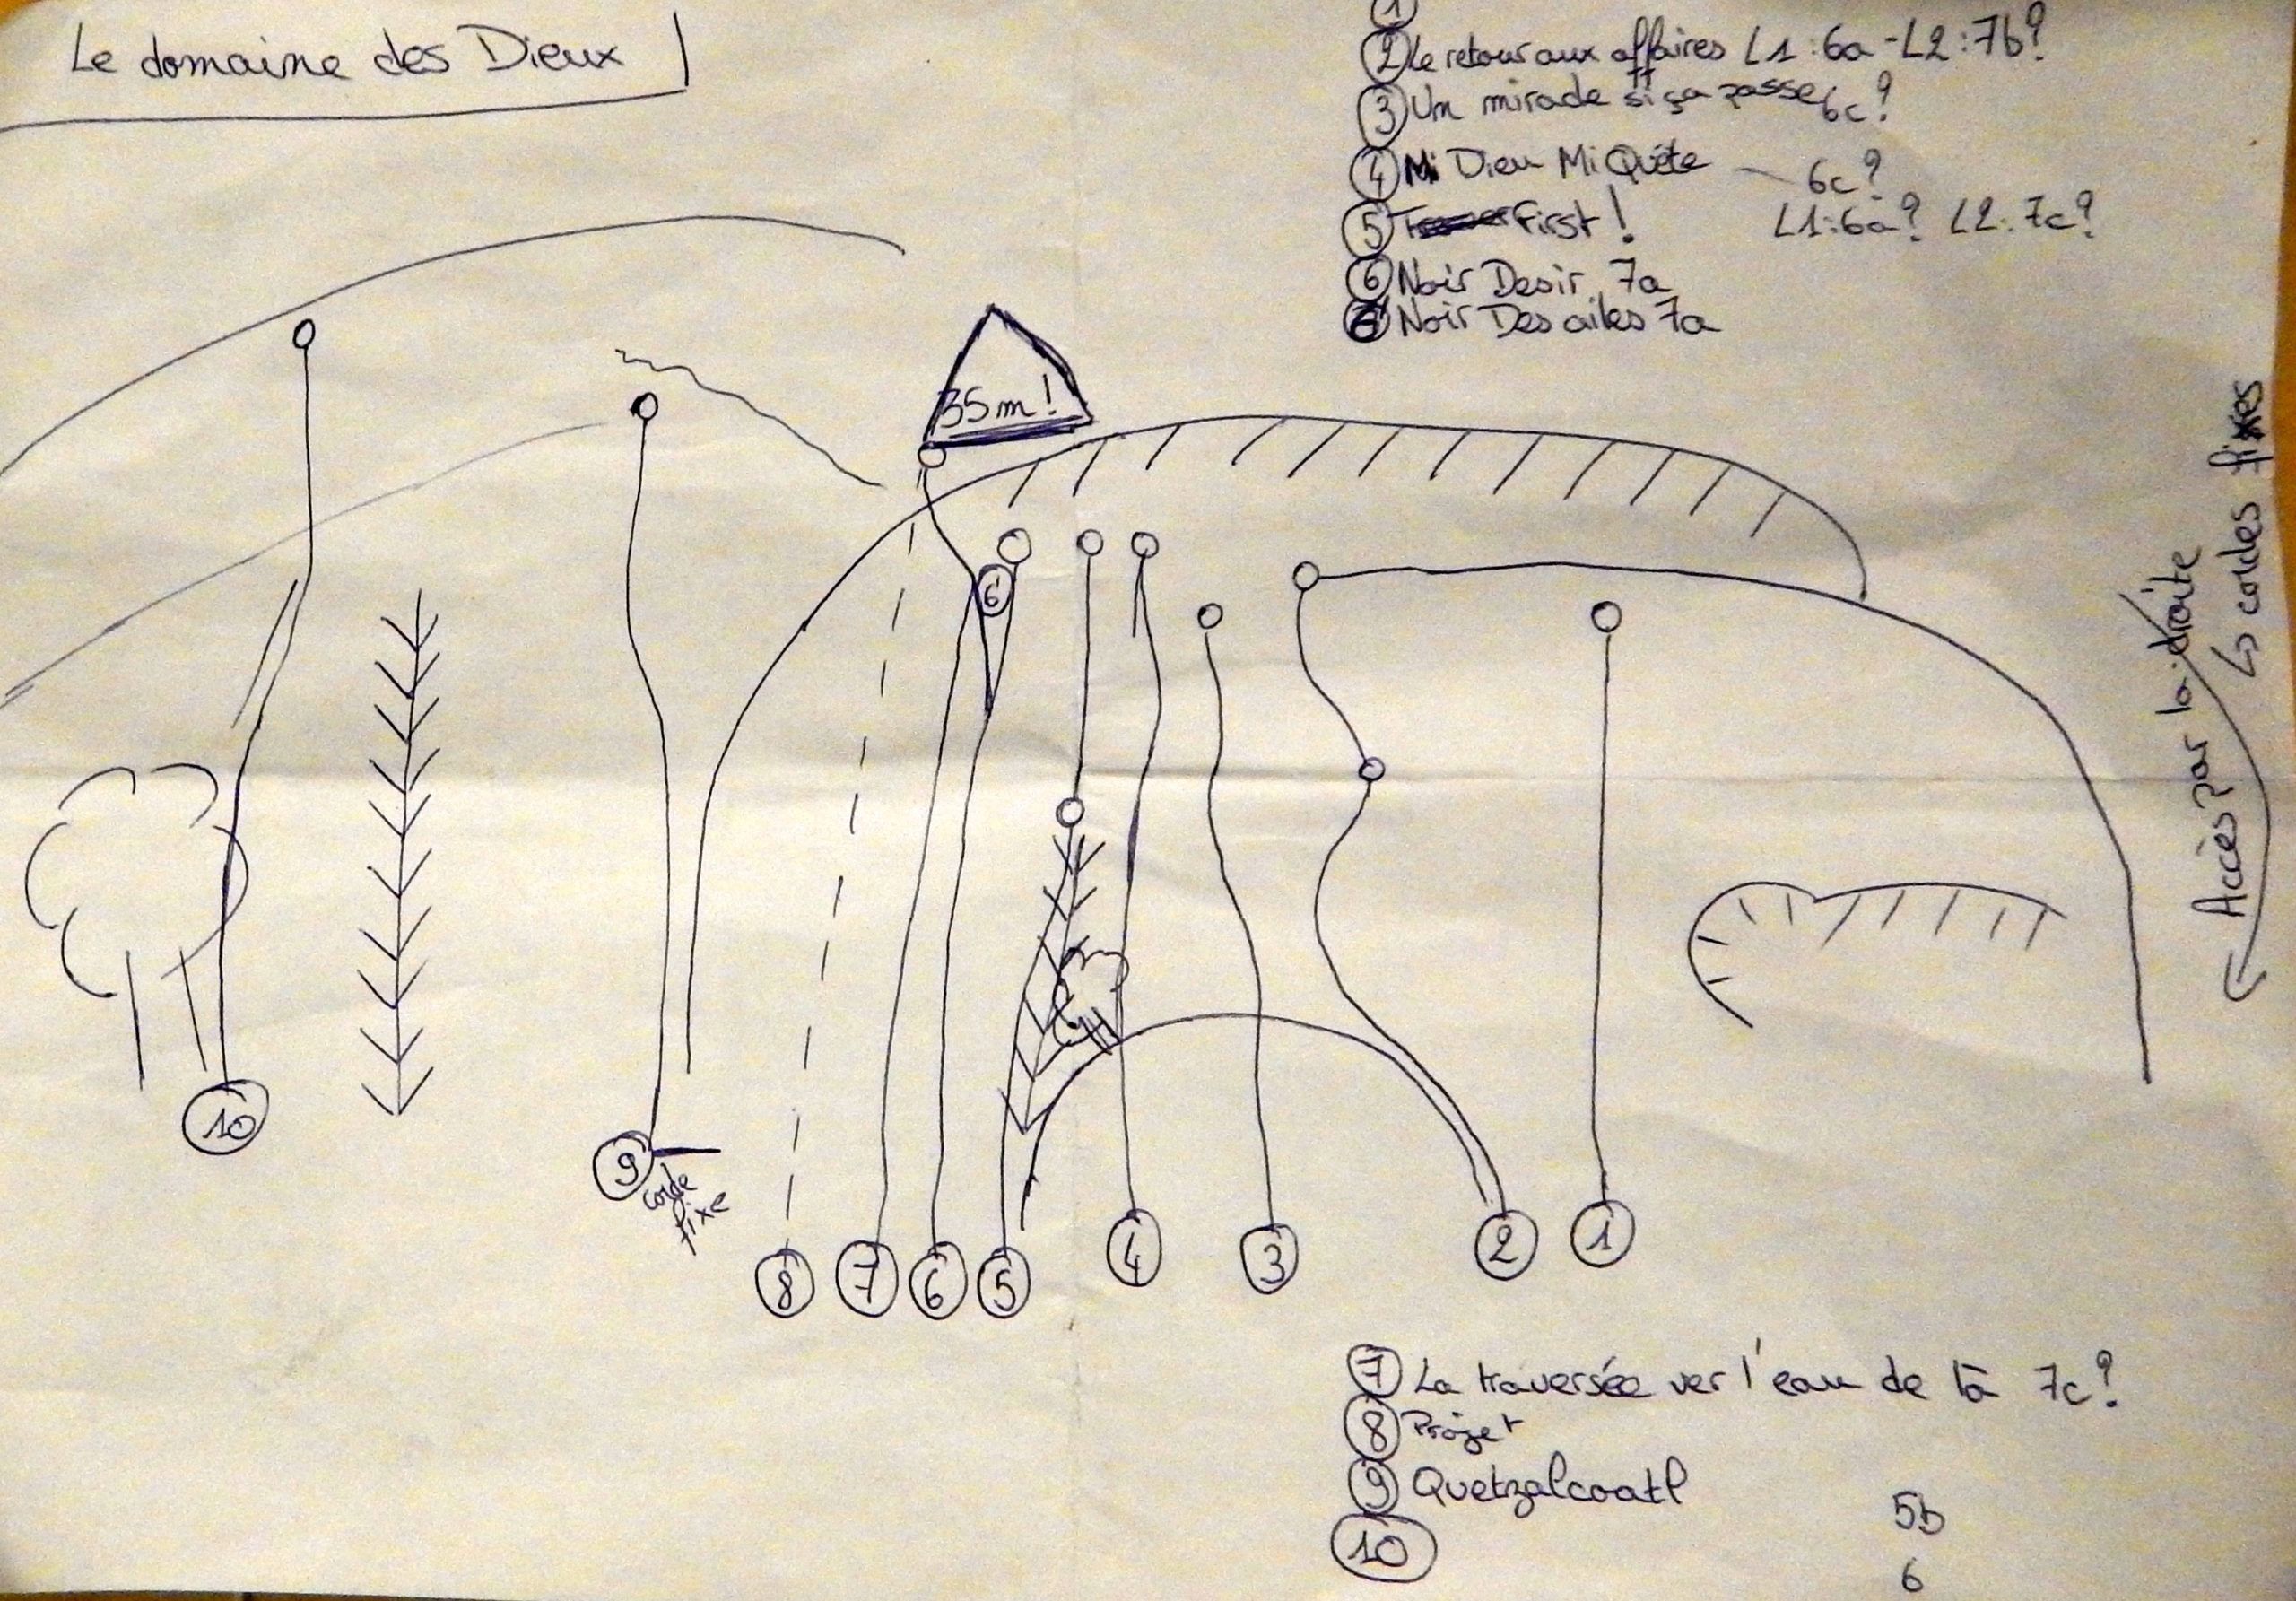 Le domaine des Dieux
①
② Le retour aux affaires L1:6a-L2:7b?
③ Un miracle si ça passe 6c?
④ Mi Dieu Mi Quête — 6c?
⑤ First! L1:6a? L2:7c?
⑥ Noir Desir 7a
Noir Des ailes 7a
Accès par la droite
↳ cordes fixes
35m!
6
10
9
corde
fixe
8 7 6 5 4 3 2 1
⑦ La traversée ver l'eau de là 7c?
⑧ Projet
⑨ Quetzalcoatl 5b
⑩ 6